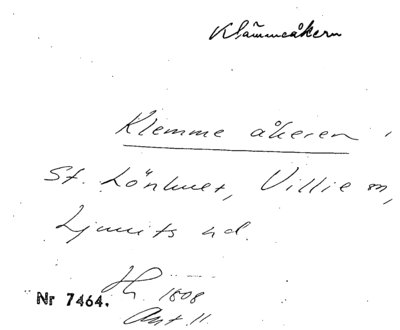 Klämmeåkern
Klemme åkeren,
St. Lönhuet, Villie sn,
Ljunits hd.
Nr 7464. 1808
Ant. 11.